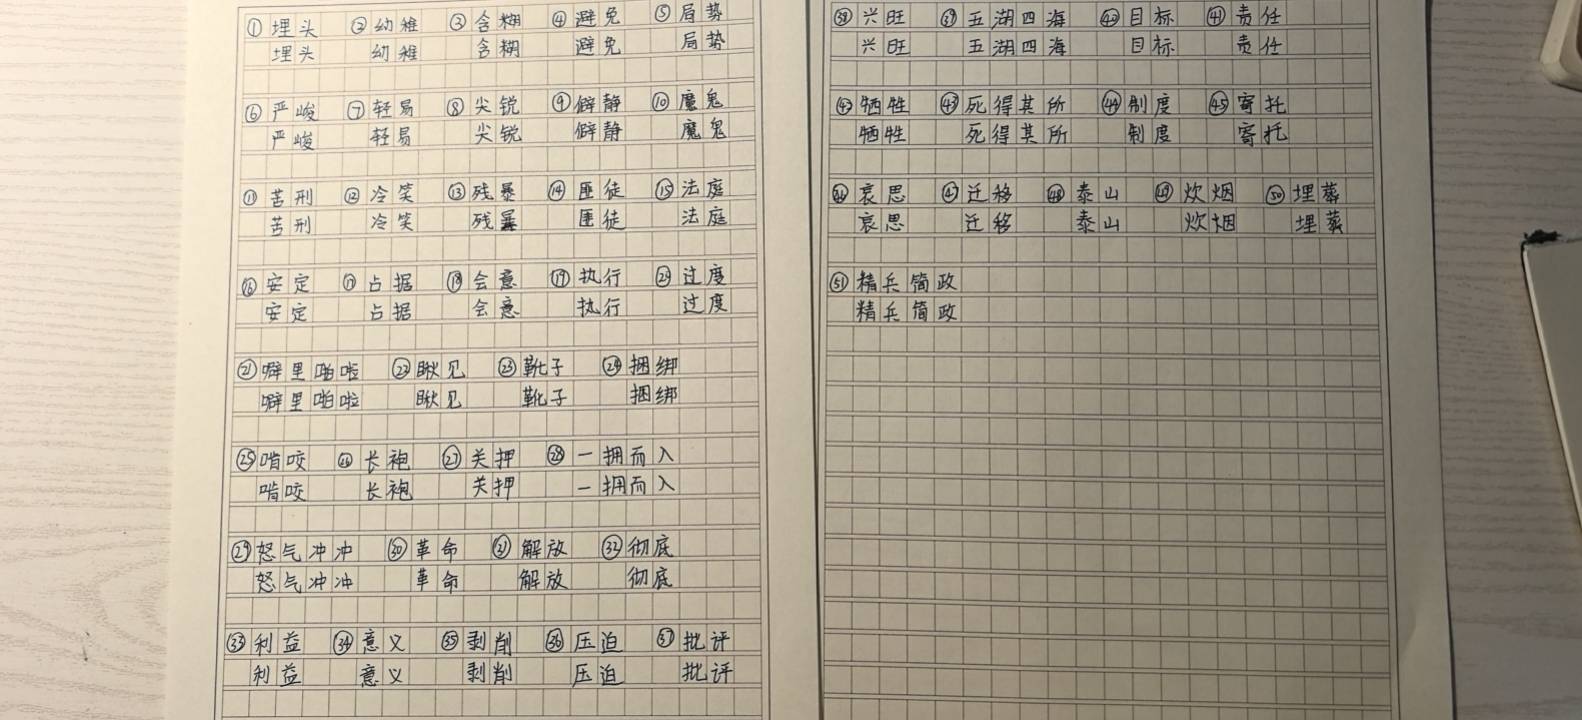 ①埋头 ②幼稚 ③含糊 ④避免 ⑤局势
埋头 幼稚 含糊 避免 局势
⑥严峻 ⑦轻易 ⑧尖锐 ⑨僻静 ⑩魔鬼
严峻 轻易 尖锐 僻静 魔鬼
⑪苦刑 ⑫冷笑 ⑬残暴 ⑭匪徒 ⑮法庭
苦刑 冷笑 残暴 匪徒 法庭
⑯安定 ⑰占据 ⑱会意 ⑲执行 ⑳过度
安定 占据 会意 执行 过度
㉑噼里啪啦 ㉒瞅见 ㉓靴子 ㉔捆绑
噼里啪啦 瞅见 靴子 捆绑
㉕啃咬 ㉖长袍 ㉗关押 ㉘一拥而入
啃咬 长袍 关押 一拥而入
㉙怒气冲冲 ㉚革命 ㉛解放 ㉜彻底
怒气冲冲 革命 解放 彻底
㉝利益 ㉞意义 ㉟剥削 ㊱压迫 ㊲批评
利益 意义 剥削 压迫 批评
㊳兴旺 ㊴五湖四海 ㊵目标 ㊶责任
兴旺 五湖四海 目标 责任
㊷牺牲 ㊸死得其所 ㊹制度 ㊺寄托
牺牲 死得其所 制度 寄托
㊻哀思 ㊼迁移 ㊽泰山 ㊾炊烟 ㊿埋葬
哀思 迁移 泰山 炊烟 埋葬
51精兵简政
精兵简政